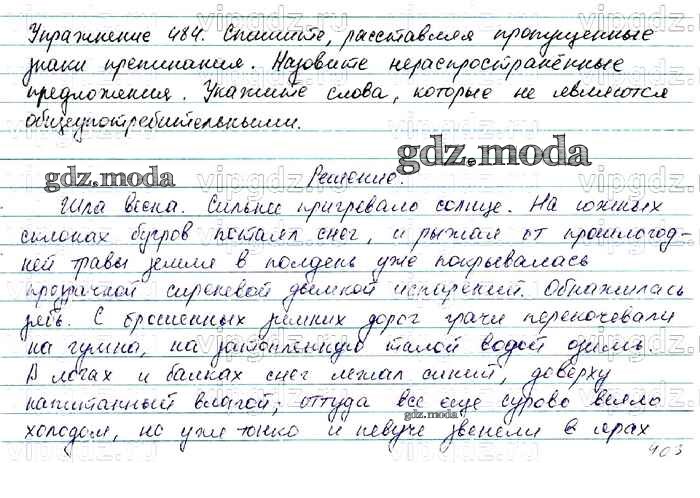 Упражнение 484. Спишите, расставляя пропущенные
знаки препинания. Назовите нераспространённые
предложения. Укажите слова, которые не являются
общеупотребительными.
gdz.moda
gdz.moda
Решение.
Шла весна. Сильнее пригревало солнце. На южных
склонах бугров потаял снег, и рыжая от прошлогод-
ней травы земля в полдень уже покрывалась
прозрачной сиреневой дымкой испарений. Обнажилась
зябь. С брошенных зимних дорог грачи перекочевали
на гумна, на затопленную талой водой озимь.
В логах и балках снег лежал синий, доверху
напитанный влагой; оттуда все еще сурово веяло
gdz.moda
холодом, но уже тонко и певуче звенели в ярах
403